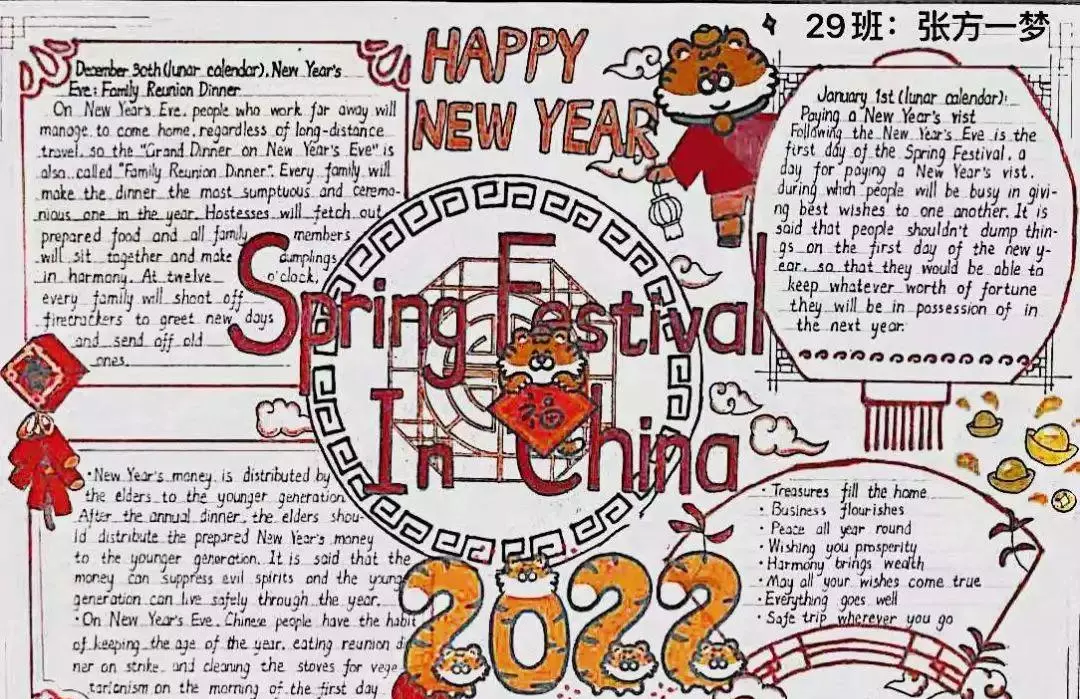 29班：张方一梦
HAPPY
NEW YEAR
December 30th (lunar calendar), New Year's
Eve: Family Reunion Dinner
On New Year's Eve, people who work far away will
manage to come home, regardless of long-distance
travel, so the "Grand Dinner on New Year's Eve" is
also called "Family Reunion Dinner". Every family will
make the dinner the most sumptuous and ceremo-
nious one in the year. Hostesses will fetch out
prepared food and all family members
will sit together and make dumplings
in harmony. At twelve o'clock,
every family will shoot off
firecrackers to greet new days
and send off old
ones.
January 1st (lunar calendar):
Paying a New Year's vist
Following the New Year's Eve is the
first day of the Spring Festival, a
day for paying a New Year's vist,
during which people will be busy in givi-
ng best wishes to one another. It is
said that people shouldn't dump thin-
gs on the first day of the new y-
ear, so that they would be able to
keep whatever worth of fortune
they will be in possession of in
the next year.
Spring Festival
In China
福
·New Year's money is distributed by
the elders to the younger generation
After the annual dinner, the elders shou-
ld distribute the prepared New Year's money
to the younger generation. It is said that the
money can suppress evil spirits and the young
generation can live safely through the year.
·On New Year's Eve, Chinese people have the habit
of keeping the age of the year, eating reunion di
ner on strike, and cleaning the stoves for vege
tarianism on the morning of the first day
2022
·Treasures fill the home
·Business flourishes
·Peace all year round
·Wishing you prosperity
·Harmony brings wealth
·May all your wishes come true
·Everything goes well
·Safe trip wherever you go